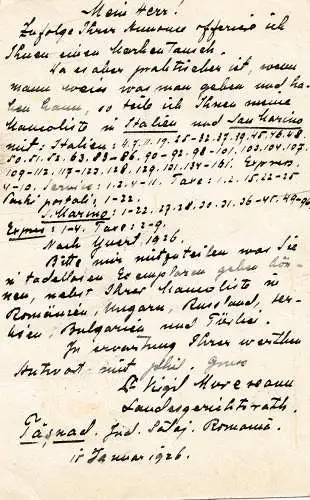 Mein Herr!
Zufolge Ihrer Annonce offeriere ich
Ihnen einen Marken Tausch.
Da es aber praktischer ist, wenn
mann weiss was man geben und ha-
ben kann, so teile ich Ihnen meine
Mancoliste in Italien und San Marino
mit: Italien: 4. 7. 11. 19. 25-32. 37. 39. 45. 46. 48.
50. 51. 52. 63. 83-86. 90-92. 98-101. 103. 104. 107.
109-112. 117-123. 128. 129. 131. 134-161. Express.
4-10. Service: 1. 2. 4-11. Taxe: 1. 2. 15. 22-25
Pachi postali: 1-22.
S. Marino: 1-22. 27. 28. 30. 31. 36-45. 49-96
Expres: 1-4. Taxe: 2-9.
Nach Yvert 1926.
Bitte mir mitzuteilen was Sie
in tadellosen Exemplaren geben kön-
nen, nebst Ihrer Mancoliste in
Romänien, Ungarn, Russland, Ser-
bien, Bulgarien und Türkei.
In erwartung Ihrer werthen
Antwort mit phil. Gruss
Dr Vigil
Landesgerichtsrath.
Tăşnad. Jud. Sălaj. Romania.
15 Januar 1926.